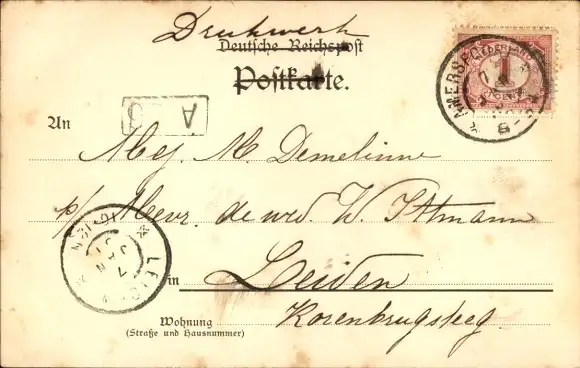 Drukwerk
Deutsche Reichspost
Postkarte.
NEDERLAND
1
AMERSFOORT
A
An
Mej. M. Demelinne
p/a Mevr. de wed. W. Ittmann
LEIDEN
7
JAN
in Leiden
Korenbrugsteeg.
Wohnung
(Straße und Hausnummer)